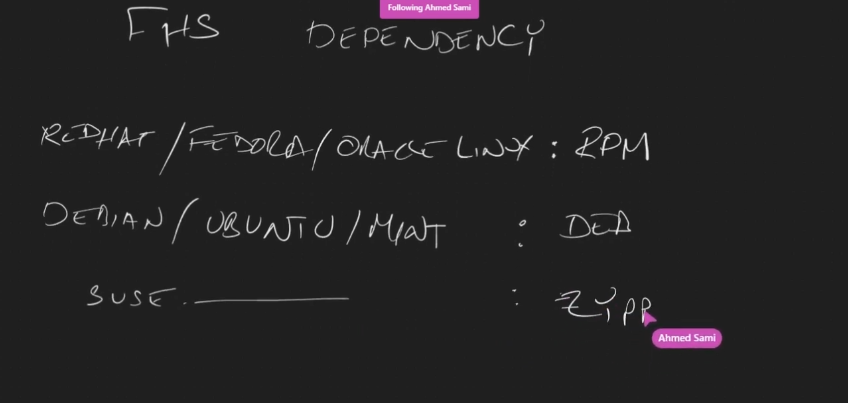 Following Ahmed Sami
FHS DEPENDENCY
REDHAT / FEDORA / ORACLE LINUX : RPM
DEBIAN / UBUNTU / MINT : DEB
SUSE. : ZYPP
Ahmed Sami